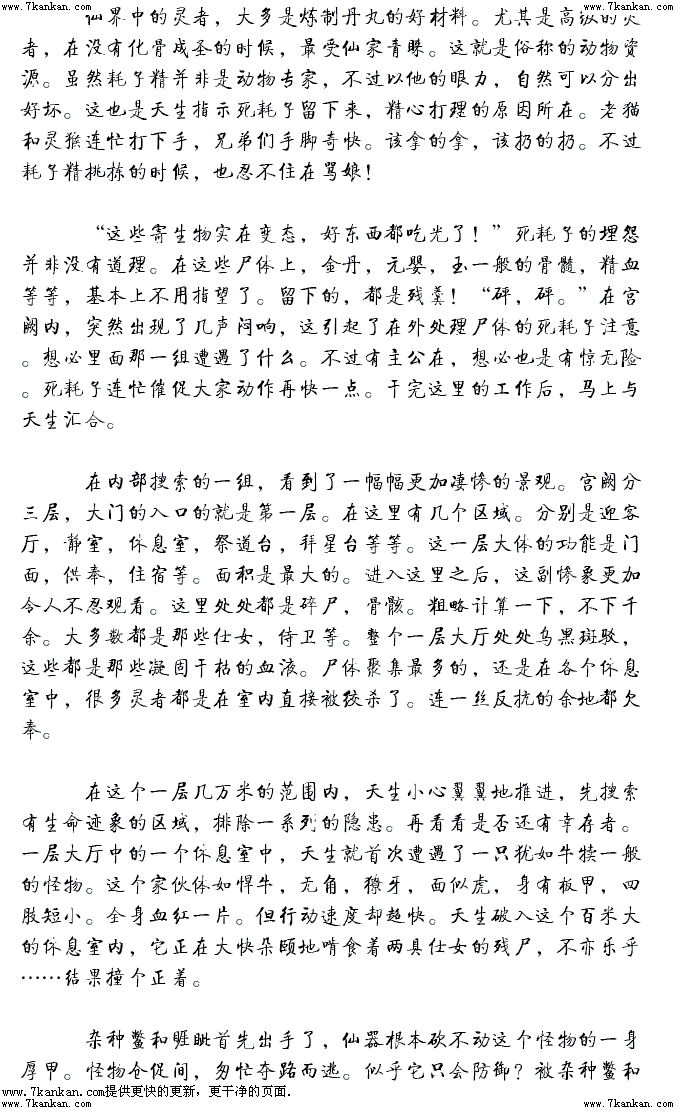 www.7kankan.com www.7kankan.com www.7kankan.com
仙界中的灵者，大多是炼制丹丸的好材料。尤其是高级的灵
者，在没有化骨成圣的时候，最受仙家青睐。这就是俗称的动物资
源。虽然耗子精并非是动物专家，不过以他的眼力，自然可以分出
好坏。这也是天生指示死耗子留下来，精心打理的原因所在。老猫
和灵猴连忙打下手，兄弟们手脚奇快。该拿的拿，该扔的扔。不过
耗子精挑拣的时候，也忍不住在骂娘！
“这些寄生物实在变态，好东西都吃光了！”死耗子的埋怨
并非没有道理。在这些尸体上，金丹，元婴，玉一般的骨髓，精血
等等，基本上不用指望了。留下的，都是残羹！“砰，砰。”在宫
阙内，突然出现了几声闷响，这引起了在外处理尸体的死耗子注意
。想必里面那一组遭遇了什么。不过有主公在，想必也是有惊无险
。死耗子连忙催促大家动作再快一点。干完这里的工作后，马上与
天生汇合。
在内部搜索的一组，看到了一幅幅更加凄惨的景观。宫阙分
三层，大门的入口的就是第一层。在这里有几个区域。分别是迎客
厅，静室，休息室，祭道台，拜星台等等。这一层大体的功能是门
面，供奉，住宿等。面积是最大的。进入这里之后，这副惨象更加
令人不忍观看。这里处处都是碎尸，骨骸。粗略计算一下，不下千
余。大多数都是那些仕女，侍卫等。整个一层大厅处处乌黑斑驳，
这些都是那些凝固干枯的血液。尸体聚集最多的，还是在各个休息
室中，很多灵者都是在室内直接被绞杀了。连一丝反抗的余地都欠
奉。
在这个一层几万米的范围内，天生小心翼翼地推进，先搜索
有生命迹象的区域，排除一系列的隐患。再看看是否还有幸存者。
一层大厅中的一个休息室中，天生就首次遭遇了一只犹如牛犊一般
的怪物。这个家伙体如悍牛，无角，獠牙，面似虎，身有板甲，四
肢短小。全身血红一片。但行动速度却超快。天生破入这个百米大
的休息室内，它正在大快朵颐地啃食着两具仕女的残尸，不亦乐乎
……结果撞个正着。
杂种鳖和睚眦首先出手了，仙器根本砍不动这个怪物的一身
厚甲。怪物仓促间，匆忙夺路而逃。似乎它只会防御？被杂种鳖和
www.7kankan.com提供更快的更新，更干净的页面.
www.7kankan.com www.7kankan.com www.7kankan.com